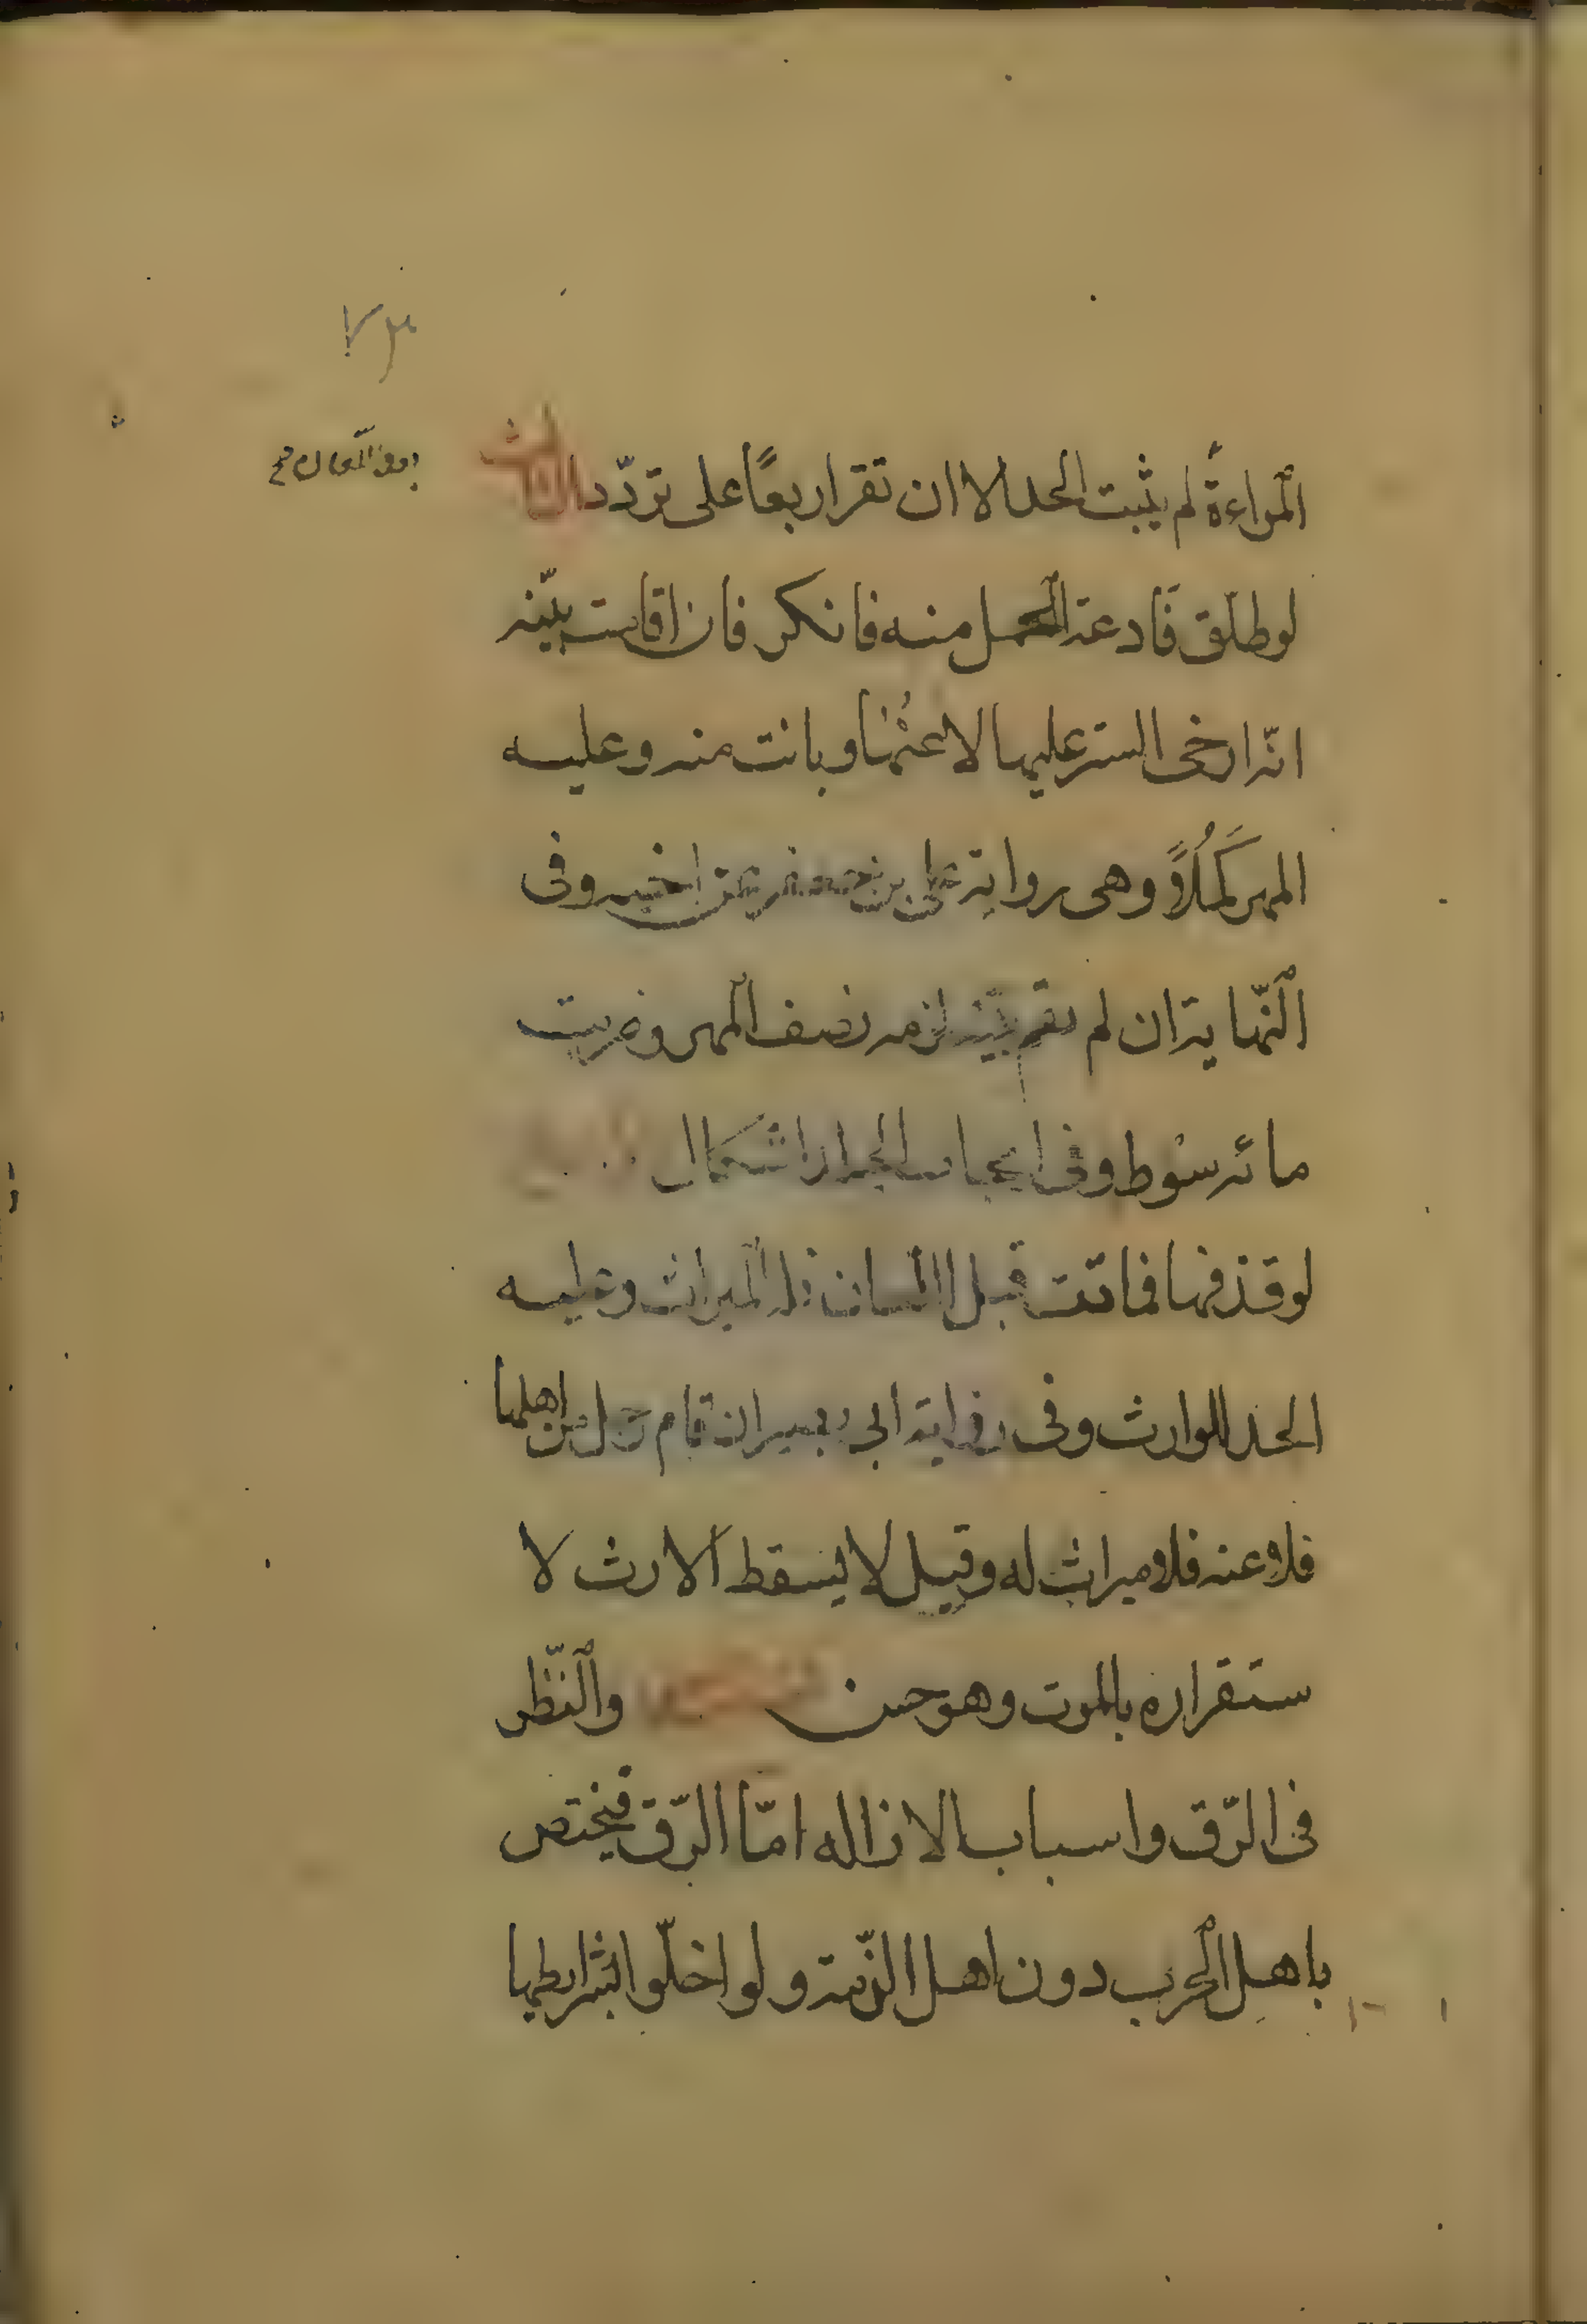 ٧٣
المراءة لم يثبت الحد الا ان تقر اربعًا على تردّد الثالث
لو طلّق فادعت الحمل منه فانكر فان اقامت بيّنه
انّه ارخى الستر عليها لاعنها وبانت منه وعليه
المهر كَمُلًا وهى رواية على بن جعفر عن اخيه وفى
النّهاية ان لم تقم بيّنه لزمه نصف المهر وضربت
مائه سوط وفى ايجاب الجلد اشكال
لو قذفها فماتت قبل اللعان فله الميراث وعليه
الحد للوارث وفى رواية ابى بصير ان قام رجل من اهلها
فلاعنه فلا ميراث له وقيل لا يسقط الارث لا
ستقراره بالموت وهو حسن والنّظر
فى الرّق واسباب الازاله امّا الرّق فيختص
باهل الحرب دون اهل الذّمة ولو اخلّوا بشرايطها